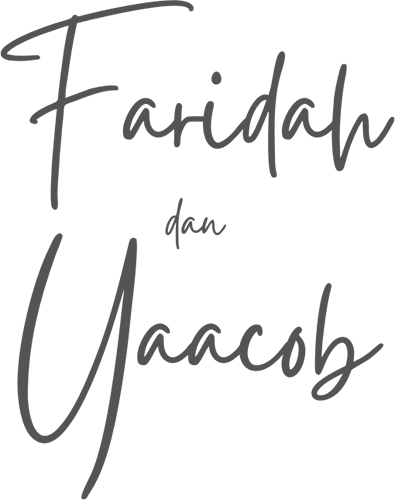 Faridah
dan
Yaacob